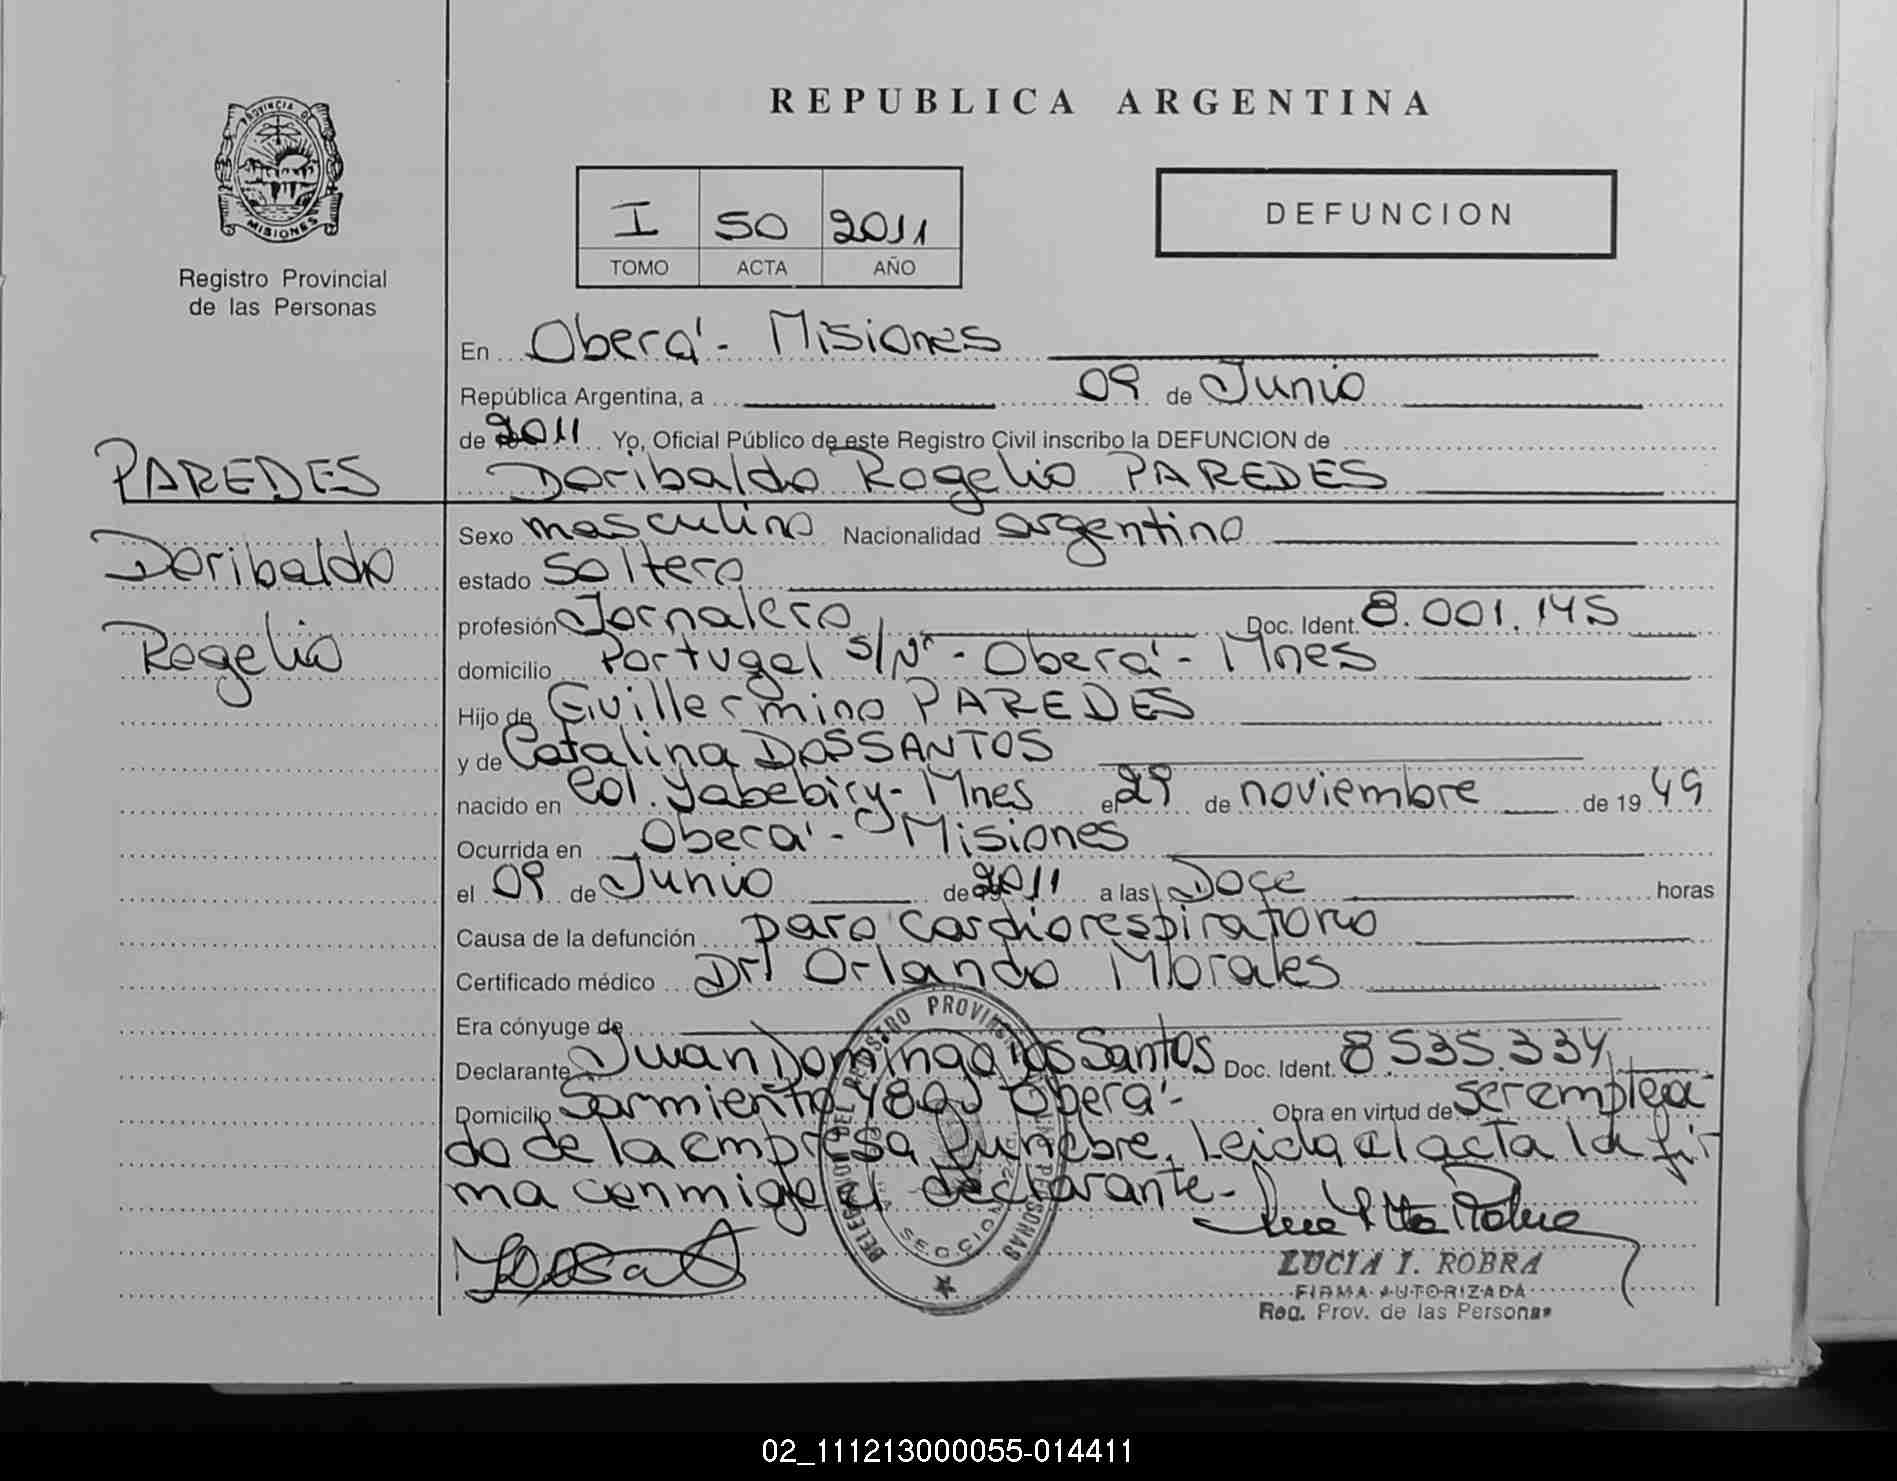 REPUBLICA ARGENTINA
PROVINCIA DE
MISIONES
Registro Provincial
de las Personas
I 50 2011
TOMO ACTA AÑO
DEFUNCION
En Oberá - Misiones
República Argentina, a 09 de Junio
de 2011 Yo, Oficial Público de este Registro Civil inscribo la DEFUNCION de
Doribaldo Rogelio PAREDES
PAREDES
Doribaldo
Rogelio
Sexo masculino Nacionalidad argentino
estado soltero
profesión Jornalero Doc. Ident. 8.001.145
domicilio Portugal s/Nº - Oberá - Mnes
Hijo de Guillermino PAREDES
y de Catalina DOSSANTOS
nacido en Col. Yabebiry - Mnes el 29 de noviembre de 1949
Ocurrida en Oberá - Misiones
el 09 de Junio de 2011 a las Doce horas
Causa de la defunción paro cardiorespiratorio
Certificado médico Dr Orlando Morales
Era cónyuge de
Declarante Juan Domingo dos Santos Doc. Ident. 8.535.334
Domicilio Sarmiento Oberá - Obra en virtud de ser emplea
do de la empresa funebre. Leida el acta la fir
ma conmigo el declarante -
LUCIA I. ROBRA
FIRMA AUTORIZADA
Reg. Prov. de las Personas
02_111213000055-014411